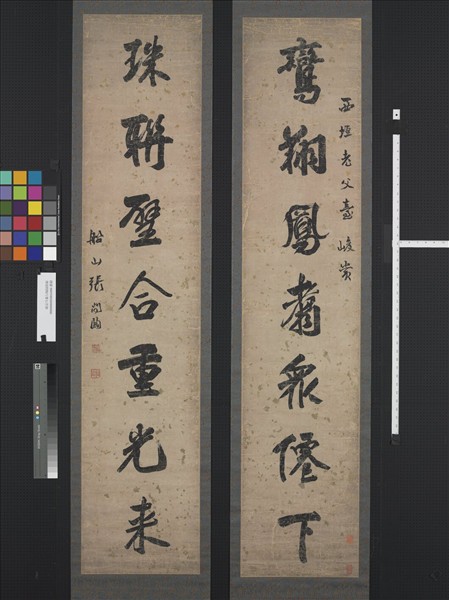 西垣老父臺
鸞翔鳳翥衆僊下
珠聯璧合重光来
船山張問陶